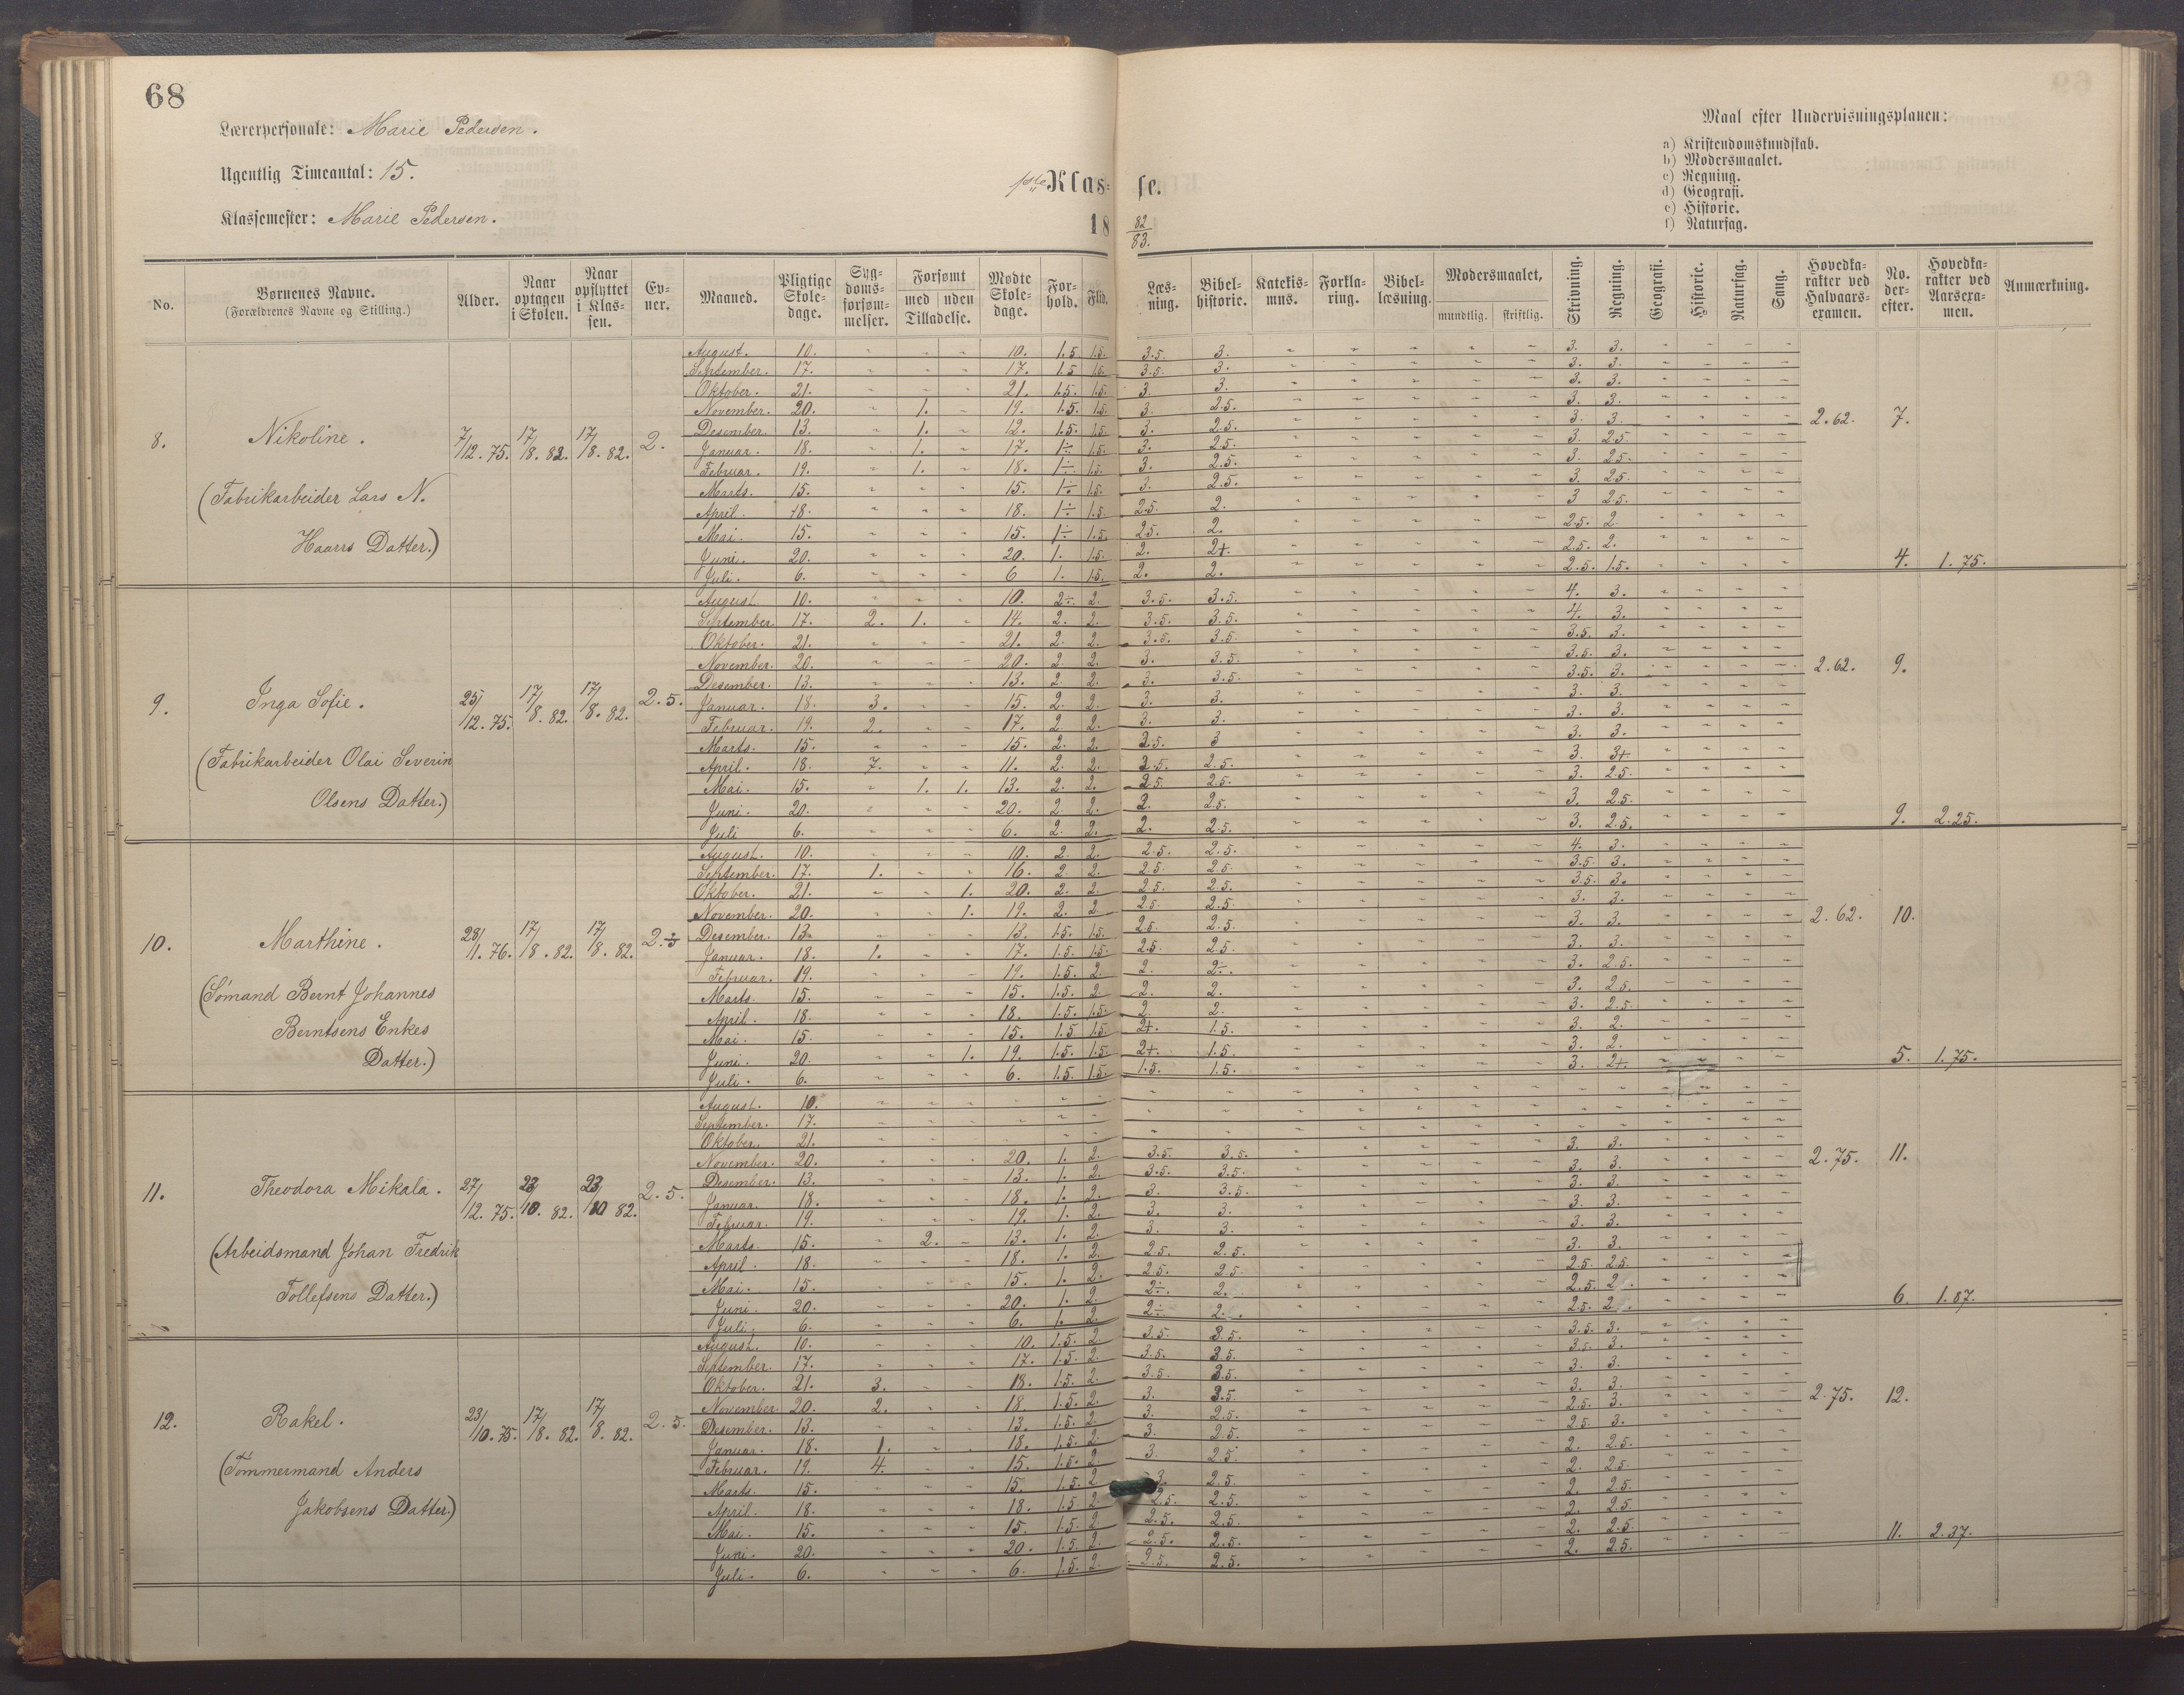 68
Lærerpersonale: Marie Pedersen.
Ugentlig Timeantal: 15.
Klassemester: Marie Pedersen.
1ste Klas- se.
18 82/83.
Maal efter Undervisningsplanen:
a) Kristendomskundskab.
b) Modersmaalet.
c) Regning.
d) Geografi.
e) Historie.
f) Naturfag.
No. Børnenes Navne. (Forældrenes Navne og Stilling.) Alder. Naar optagen i Skolen. Naar opflyttet i Klassen. Evner. Maaned. Pligtige Skoledage. Sygdomsforsømmelser. Forsømt med uden Tilladelse. Mødte Skoledage. Forhold. Flid. Læsning. Bibelhistorie. Katekismus. Forklaring. Bibellæsning. Modersmaalet, mundtlig. skriftlig. Skrivning. Regning. Geografi. Historie. Naturfag. Sang. Hovedkarakter ved Halvaarsexamen. No. derefter. Hovedkarakter ved Aarsexamen. Anmærkning.
8. Nikoline. 7/12.75. 17/8.82. 17/8.82. 2. 2.62. 7.
(Fabrikarbeider Lars N.
Haarrs Datter.) 4. 1.75.
August. 10. - - - 10. 1.5. 1.5. 3.5. 3. 3. 3.
September. 17. - - - 17. 1.5 1.5. 3.5. 3. 3. 3.
Oktober. 21. - - - 21. 1.5. 1.5. 3. 3. 3. 3.
November. 20. - 1. - 19. 1.5. 1.5. 3. 2.5. 3. 3.
Desember. 13. - 1. - 12. 1.5. 1.5. 3. 2.5. 3. 3.
Januar. 18. - 1. - 17. 1÷. 1.5. 3. 2.5. 3. 2.5.
Februar. 19. - 1. - 18. 1÷. 1.5. 3. 2.5. 3. 2.5.
Marts. 15. - - - 15. 1÷ 1.5. 3. 2.5. 3. 2.5.
April. 18. - - - 18. 1÷ 1.5. 2.5. 2. 3 2.5.
Mai. 15. - - - 15. 1÷ 1.5. 2.5. 2. 2.5. 2.
Juni. 20. - - - 20. 1. 1.5. 2. 2+. 2.5. 2.
Juli. 6. - - - 6 1. 1.5. 2. 2. 2.5. 1.5.
9. Inga Sofie. 25/12.75. 17/8.82. 17/8.82. 2.5. 2.62. 9.
(Fabrikarbeider Olai Severin
Olsens Datter.) 9. 2.25.
August. 10. - - - 10. 2÷. 2. 3.5. 3.5. 4. 3.
September. 17. 2. 1. - 14. 2. 2. 3.5. 3.5. 4. 3.
Oktober. 21. - - - 21. 2. 2. 3.5. 3.5. 3.5. 3.
November. 20. - - - 20. 2. 2. 3. 3.5. 3.5. 3.
Desember. 13. - - - 13. 2. 2. 3. 3.5. 3.5. 3.
Januar. 18. 3. - - 15. 2. 2. 3. 3. 3. 3.
Februar. 19. 2. - - 17. 2. 2. 3. 3. 3. 3.
Marts. 15. - - - 15. 2. 2. 2.5. 3 3. 3.
April. 18. 7. - - 11. 2. 2. 2.5. 2.5. 3 3+
Mai. 15. - 1. 1. 13. 2. 2. 2.5 2.5. 3. 2.5.
Juni. 20. - - - 20. 2 2. 2. 2.5. 3. 2.5.
Juli 6. - - - 6. 2. 2. 2. 2.5. 3. 2.5.
10. Marthine. 28/1.76. 17/8.82. 17/8.82. 2.÷5 2.62. 10.
(Sømand Bernt Johannes
Berntsens Enkes
Datter.) 5. 1.75.
August. 10. - - - 10. 2. 2. 2.5. 2.5. 4. 3.
September. 17. 1. - - 16. 2. 2. 2.5 2.5. 3.5. 3.
Oktober. 21. - - 1. 20. 2. 2. 2.5. 2.5. 3.5. 3.
November. 20. - - 1. 19. 2. 2 2.5 2.5. 3. 3.
Desember. 13. - - - 13. 1.5. 1.5. 2.5. 2.5. 3. 3.
Januar. 18. 1. - - 17. 1.5. 1.5. 2.5. 2.5. 3. 3.
Februar. 19. - - - 19. 1.5. 2. 2. 2÷. 3. 2.5.
Marts. 15. - - - 15. 1.5. 2. 2. 2. 3. 2.5.
April. 18. - - - 18. 1.5. 1.5. 2. 2. 3. 2.5.
Mai. 15. - - - 15. 1.5 1.5. 2+. 1.5. 3. 2.
Juni. 20. - - 1. 19. 1.5. 1.5. 2+. 1.5. 3. 2.
Juli. 6. - - - 6. 1.5. 1.5. 1.5. 1.5. 3. 2+.
11. Theodora Mikala. 27/12.75. 23/10.82. 23/10 82. 2.5. 2.75. 11.
(Arbeidsmand Johan Fredrik
Tollefsens Datter.) 6. 1.87.
August. 10. - - -
September. 17. - - -
Oktober. 21. - - -
November. 20. - - - 20. 1. 2. 3.5. 3.5. 3. 3.
Desember. 13. - - - 13. 1. 2. 3.5. 3.5. 3. 3.
Januar. 18. - - - 18. 1. 2. 3. 3.5. 3. 3.
Februar. 19. - - - 19. 1. 2. 3. 3. 3. 3.
Marts. 15. - 2. - 13. 1. 2. 3. 3. 3. 3.
April. 18. - - - 18. 1. 2. 2.5. 2.5. 3. 3.
Mai. 15. - - - 15. 1. 2. 2.5. 2.5. 2.5. 2.5.
Juni. 20. - - - 20. 1. 2. 2÷. 2. 2.5. 2.
Juli. 6. - - - 6. 1. 2. 2÷ 2. 2.5. 2.
12. Rakel. 23/10.75. 17/8.82. 17/8.82. 2.5. 2.75. 12.
(Tømmermand Anders
Jakobsens Datter.) 11. 2.37.
August. 10. - - - 10. 1.5. 2. 3.5. 3.5. 3.5. 3.
September. 17. - - - 17. 1.5. 2. 3.5. 3.5. 3.5. 3.
Oktober. 21. 3. - - 18. 1.5. 2. 3.5. 3.5. 3. 3.
November. 20. 2. - - 18. 1.5. 2. 3. 3.5 3. 3.
Desember. 13. - - - 13. 1.5. 2. 3. 2.5. 2.5. 3.
Januar. 18. 1. - - 18. 1.5. 2. 3. 2.5. 2.5. 3.
Februar. 19. 4. - - 15. 1.5. 2 3. 2.5. 2. 2.5.
Marts. 15. - - - 15. 1.5. 2. 3. 2.5. 2. 2.5.
April. 18. - - - 18. 1.5. 2. 2.5. 2.5. 2. 2.5.
Mai. 15. - - - 15. 1.5. 2 2.5. 2.5. 2. 2.5
Juni. 20. - - - 20. 1.5. 2. 2.5. 2.5. 2. 2.5.
Juli. 6. - - - 6. 1.5. 2. 2.5. 2.5. 2. 2.5.